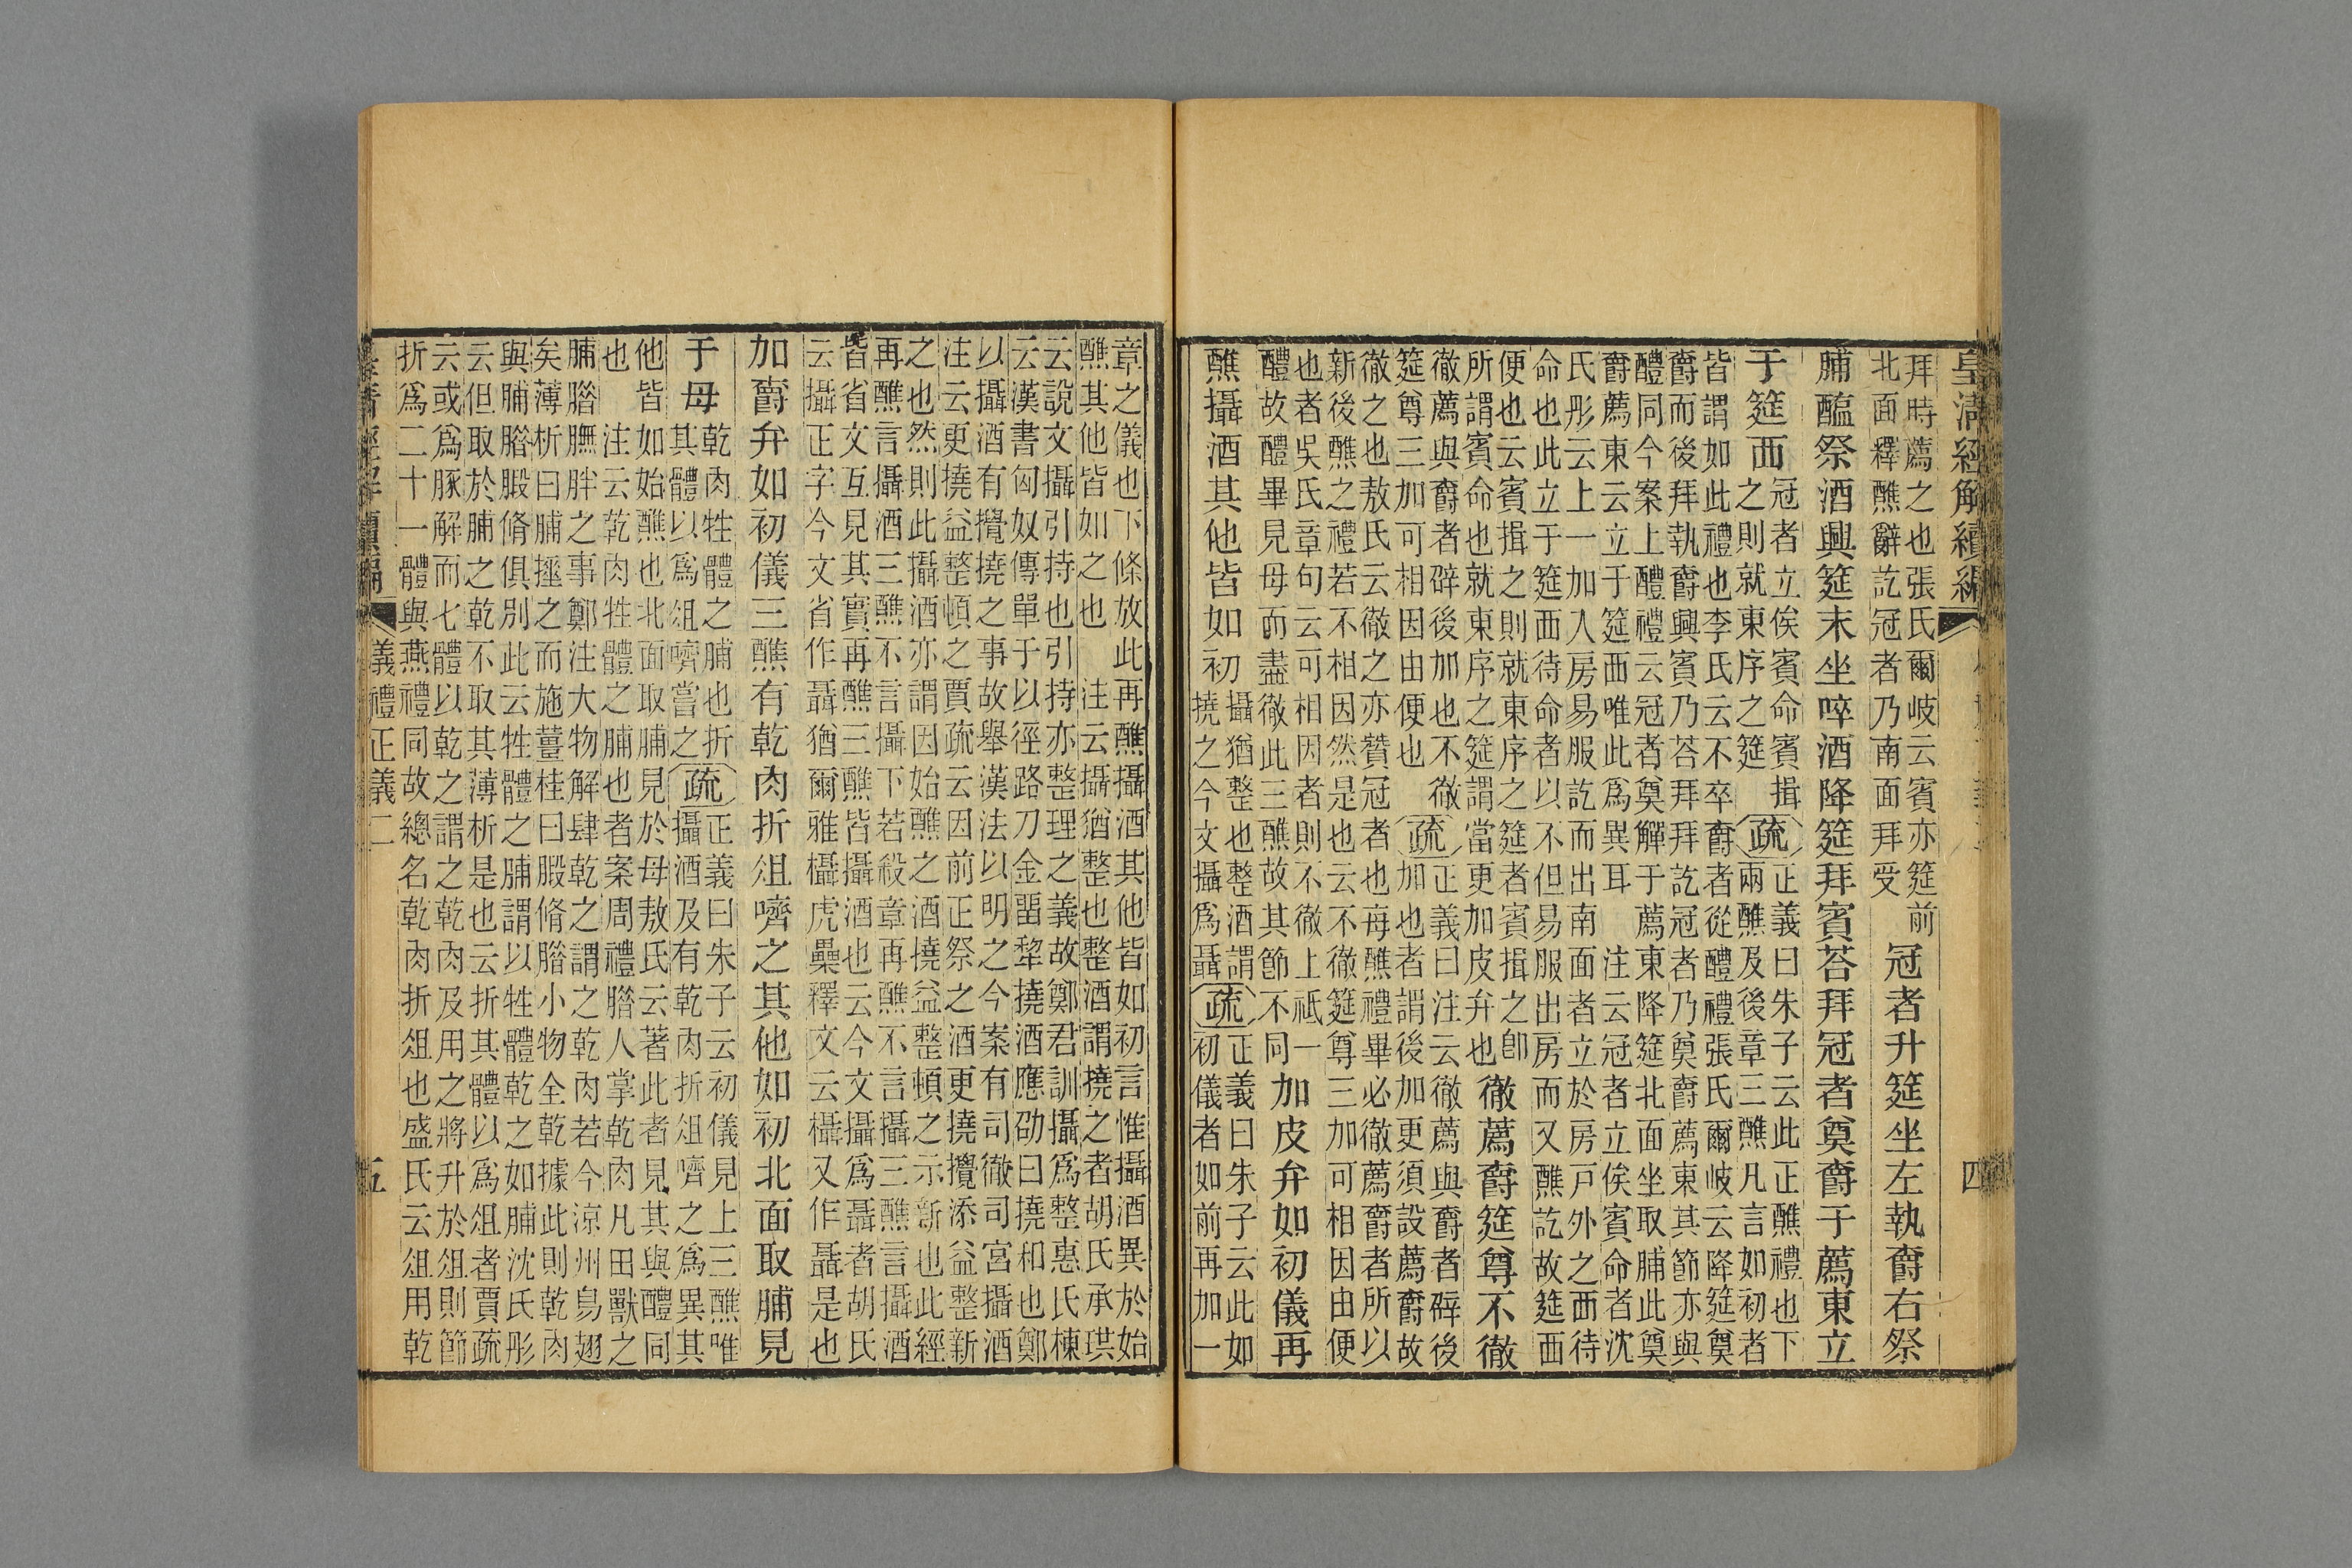 皇清經解續編
四
拜時薦之也張氏爾岐云賓亦筵前
北面釋醮辭訖冠者乃南面拜受
冠者升筵坐左執爵右祭
脯醢祭酒興筵末坐啐酒降筵拜賓荅拜冠者奠爵于薦東立
于筵西
冠者立俟賓命賓揖
之則就東序之筵
疏
正義曰朱子云此正醮禮也下
兩醮及後章三醮凡言如初者
皆謂如此禮也李氏云不卒爵者從醴禮張氏爾岐云降筵奠
爵而後拜執爵興賓乃荅拜拜訖冠者乃奠爵薦東其節亦與
醴同今案上醴禮云冠者奠觶于薦東降筵北面坐取脯此奠
爵薦東云立于筵西唯此爲異耳 注云冠者立俟賓命者沈
氏彤云上一加入房易服訖而出南面者立於房戶外之西待
命也此立于筵西待命者以不但易服出房而又醮訖故筵西
便也云賓揖之則就東序之筵者賓揖之卽
所謂賓命也就東序之筵謂當更加皮弁也
徹薦爵筵尊不徹
徹薦與爵者辟後加也不徹
筵尊三加可相因由便也
疏
正義曰注云徹薦與爵者辟後
加也者謂後加更須設薦爵故
徹之也敖氏云徹之亦贊冠者也每醮禮畢必徹薦爵者所以
新後醮之禮若不相因然是也云不徹筵尊三加可相因由便
也者吳氏章句云可相因者則不徹上祗一
醴故醴畢見母而盡徹此三醮故其節不同
加皮弁如初儀再
醮攝酒其他皆如初
攝猶整也整酒謂
撓之今文攝爲聶
疏
正義曰朱子云此如
初儀者如前再加一
章之儀也下條放此再醮攝酒其他皆如初言惟攝酒異於始
醮其他皆如之也 注云攝猶整也整酒謂撓之者胡氏承珙
云說文攝引持也引持亦整理之義故鄭君訓攝爲整惠氏棟
云漢書匈奴傳單于以徑路刀金留犂撓酒應劭曰撓和也鄭
以攝酒有攪撓之事故舉漢法以明之今案有司徹司宮攝酒
注云更撓益整頓之賈疏云因前正祭之酒更撓攪添益整新
之也然則此攝酒亦謂因始醮之酒撓益整頓之示新也此經
再醮言攝酒三醮不言攝下若殺章再醮不言攝三醮言攝酒
皆省文互見其實再醮三醮皆攝酒也云今文攝爲聶者胡氏
云攝正字今文省作聶猶爾雅欇虎櫐釋文云欇又作聶是也
加爵弁如初儀三醮有乾肉折俎嚌之其他如初北面取脯見
于母
乾肉牲體之脯也折
其體以爲俎嚌當之
疏
正義曰朱子云初儀見上三醮唯
攝酒及有乾肉折俎嚌之爲異其
他皆如始醮也北面取脯見於母敖氏云著此者見其與醴同
也 注云乾肉牲體之脯也者案周禮腊人掌乾肉凡田獸之
脯腊膴胖之事鄭注大物解肆乾之謂之乾肉若今涼州烏翅
矣薄析曰脯捶之而施薑桂曰腶脩腊小物全乾據此則乾肉
與脯腊腶脩俱別此云牲體之脯謂以牲體乾之如脯沈氏彤
云但取於脯之乾不取其薄析是也云折其體以爲俎者賈疏
云或爲豚解而七體以乾之謂之乾肉及用之將升於俎則節
折爲二十一體與燕禮同故總名乾肉折俎也盛氏云俎用乾
儀禮正義二
五